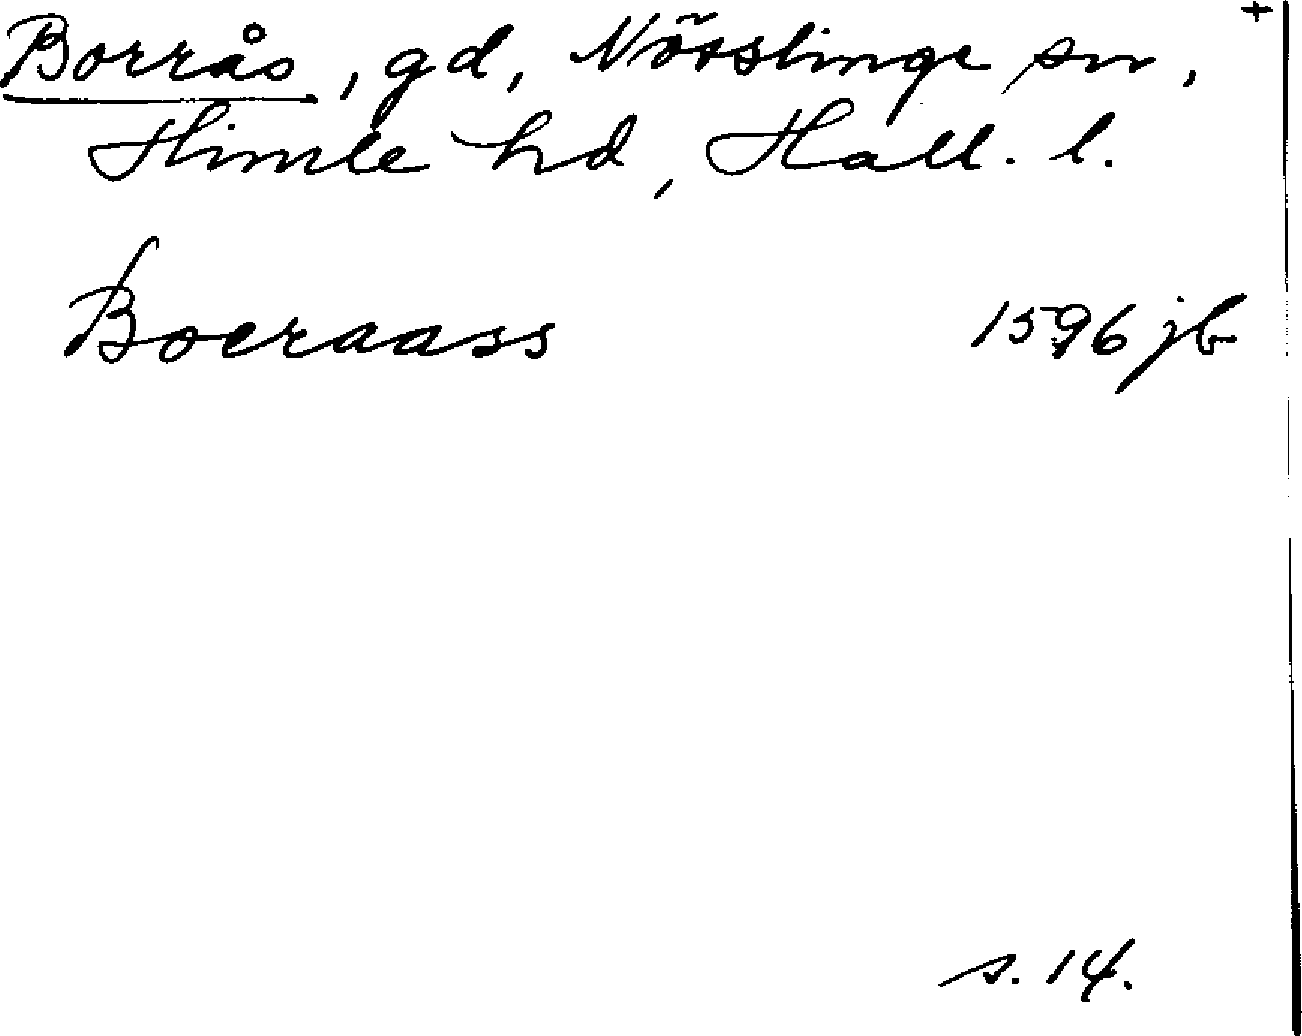 +
Borrås, gd, Nösslinge sn,
Himle hd, Hall. l.
Boeraass 1596 jb
s. 14.